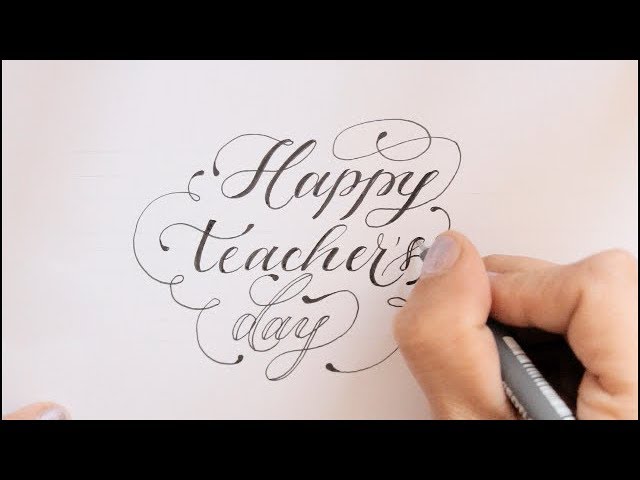 Happy
teacher's
day